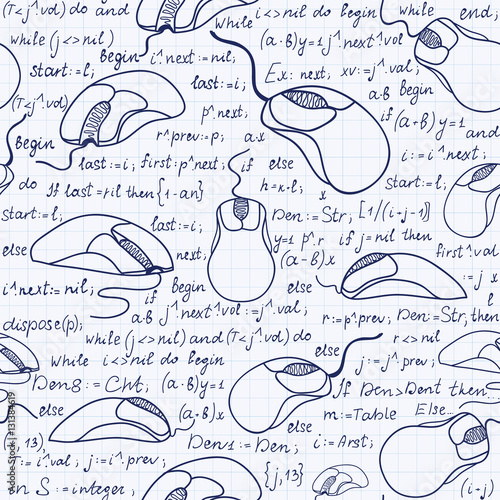 T<j^.val) do and
while i<>
end;
while (j<>nil)
(a·b)y=1 j^.next^.val
begin i^.next:=nil;
start:=l;
last:=i;
Ex: next, xv:=j^.val;
a·b begin
(T<j^.val)
p^.next;
if(a+b)y=1
r^.prev:=p;
a·x
j<>nil)and
Begin
last:=i; first:p^.next; if
else
i:=i^.next;
do If last=nil then{1-an}
h=x-l;
start:=l;
last:=i;
Den:=Str; [1/(i-j-1)]
y=1 p^.r if j=nil then
else
next;
(a-b)x
first^.val
j:=a+
i^.next:=nil;
if
Begin
else
a·b j^.val:=j^.next^.val;
dispose(p);
r:=p^.prev; Den:=Str, then
while (j<>nil)and(T<j^.val) do
r<>nil
while i<>nil do begin
else
j:=j^.prev;
Den8:=Cht; (a·b)y=1
If Den>Dent then
else
(a·b)x
m:=Table
Else...
Den1:=Den; i:=Arst;
13)
:=i^.val; j:=j^.prev;
{j,13}
en S:=integer;